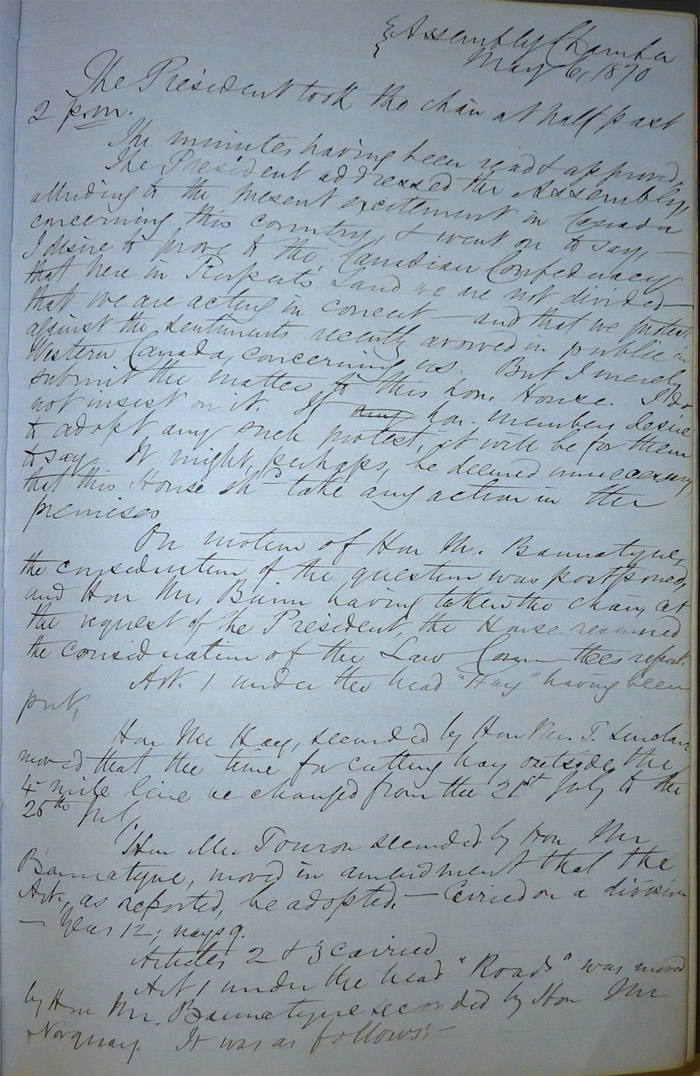 Assembly Chamber
May 6, 1870
The President took the chair at half past
2 p.m.
The minutes having been read & approved,
The President addressed the Assembly,
alluding to the present excitement in Canada
concerning this country, & went on to say, —
I desire to prove to the Canadian Confederacy
that here in Rupert's Land we are not divided —
that we are acting in concert — and that we protest
against the sentiments recently avowed in public in
Western Canada, concerning us. But I merely
submit the matter to this hon. House. I do
not insist on it. If any hon. members desire
to adopt any such protest, it will be for them
to say. It might, perhaps, be deemed unnecessary
that this House shd take any action in the
premises
On motion of Hon Mr. Bannatyne,
the consideration of the question was postponed,
and Hon Mr. Bunn having taken the chair, at
the request of he President, the House resumed
the consideration of the Law Com tees report.
Art. 1 under the head "Hay" having been
put,
Hon Mr Hay, seconded by Hon Mr. T. Sinclair
moved that the time for cutting hay outside the
4 mile line be changed from the 21st July to the
25th July,
Hon Mr Touron seconded by Hon Mr
Bannatyne, moved in amendment that the
Art., as reported, be adopted. — Carried on a division
— Yeas 12; nays 9.
Articles 2 & 3 carried
Art 1 under the head "Roads" was moved
by Hon Mr. Bannatyne seconded by Hon Mr
Norquay. It was as follows: —